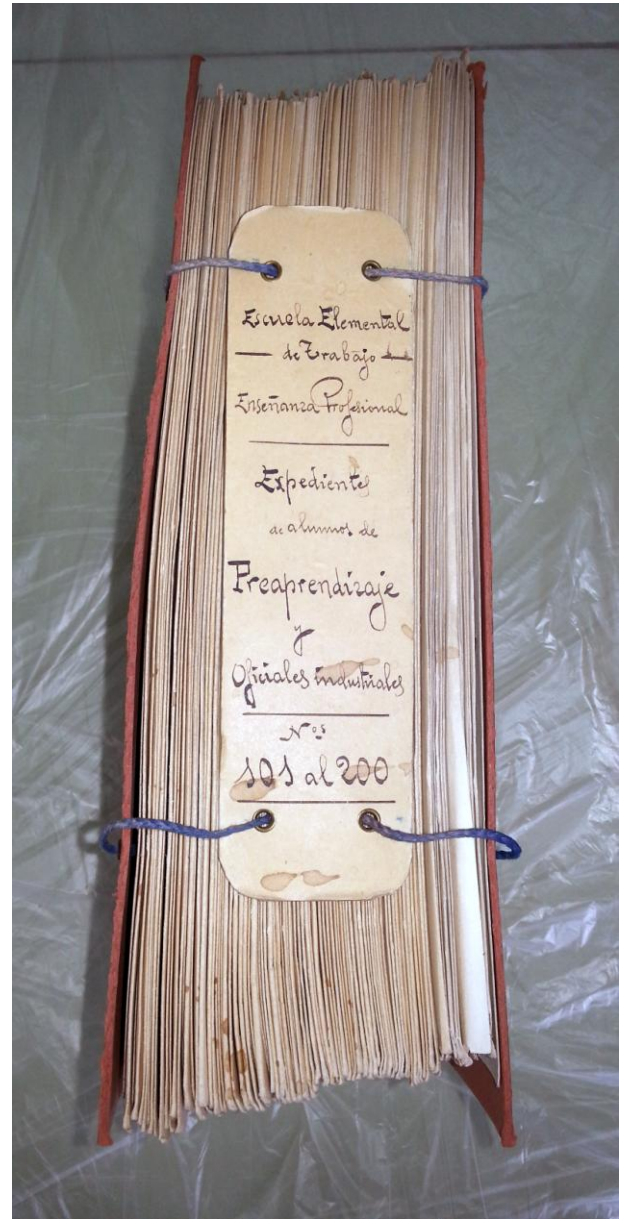 Escuela Elemental
de Trabajo
Enseñanza Profesional
Expedientes
de alumnos de
Preaprendizaje
y
Oficiales industriales
Nos
101 al 200